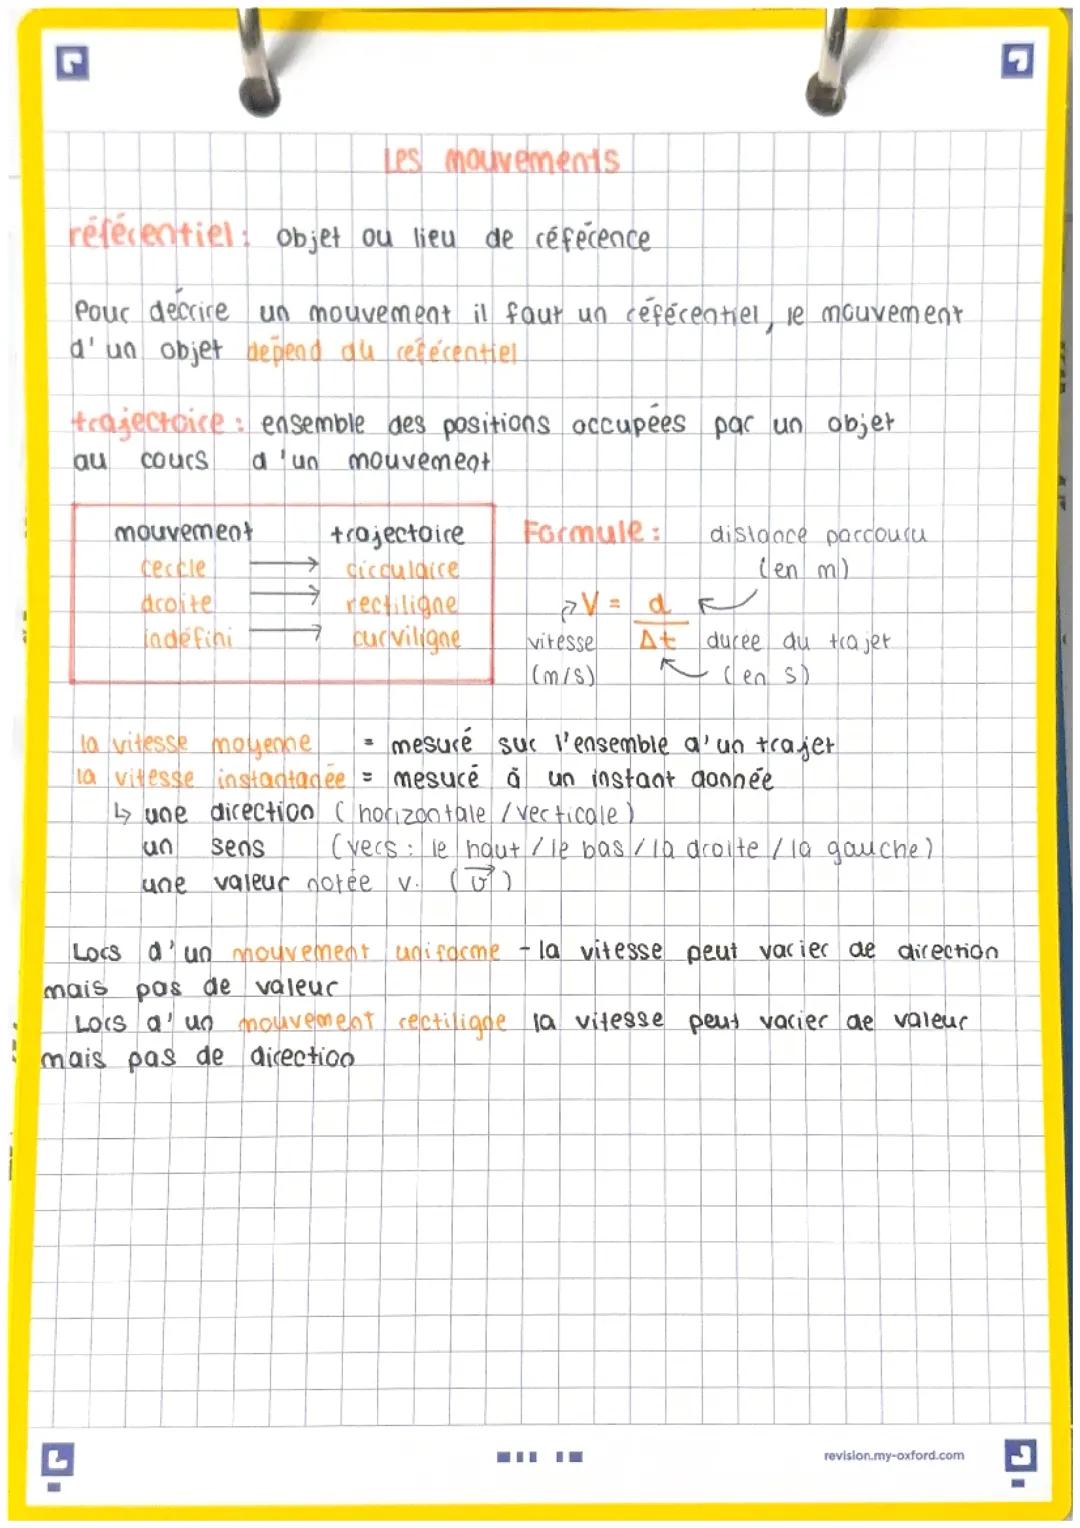 Les mouvements
référentiel : objet ou lieu de référence
Pour décrire un mouvement il faut un référentiel, le mouvement
d'un objet dépend du référentiel
trajectoire : ensemble des positions occupées par un objet
au cours d'un mouvement
mouvement trajectoire
cercle → circulaire
droite → rectiligne
indéfini → curviligne
Formule : distance parcouru
(en m)
V = d
vitesse Δt durée du trajet
(m/s) (en s)
la vitesse moyenne = mesuré sur l'ensemble d'un trajet
la vitesse instantanée = mesuré à un instant donnée
↳ une direction (horizontale / verticale)
un sens (vers : le haut / le bas / la droite / la gauche)
une valeur notée v. (v⃗)
Lors d'un mouvement uniforme - la vitesse peut varier de direction
mais pas de valeur
Lors d'un mouvement rectiligne la vitesse peut varier de valeur
mais pas de direction
revision.my-oxford.com